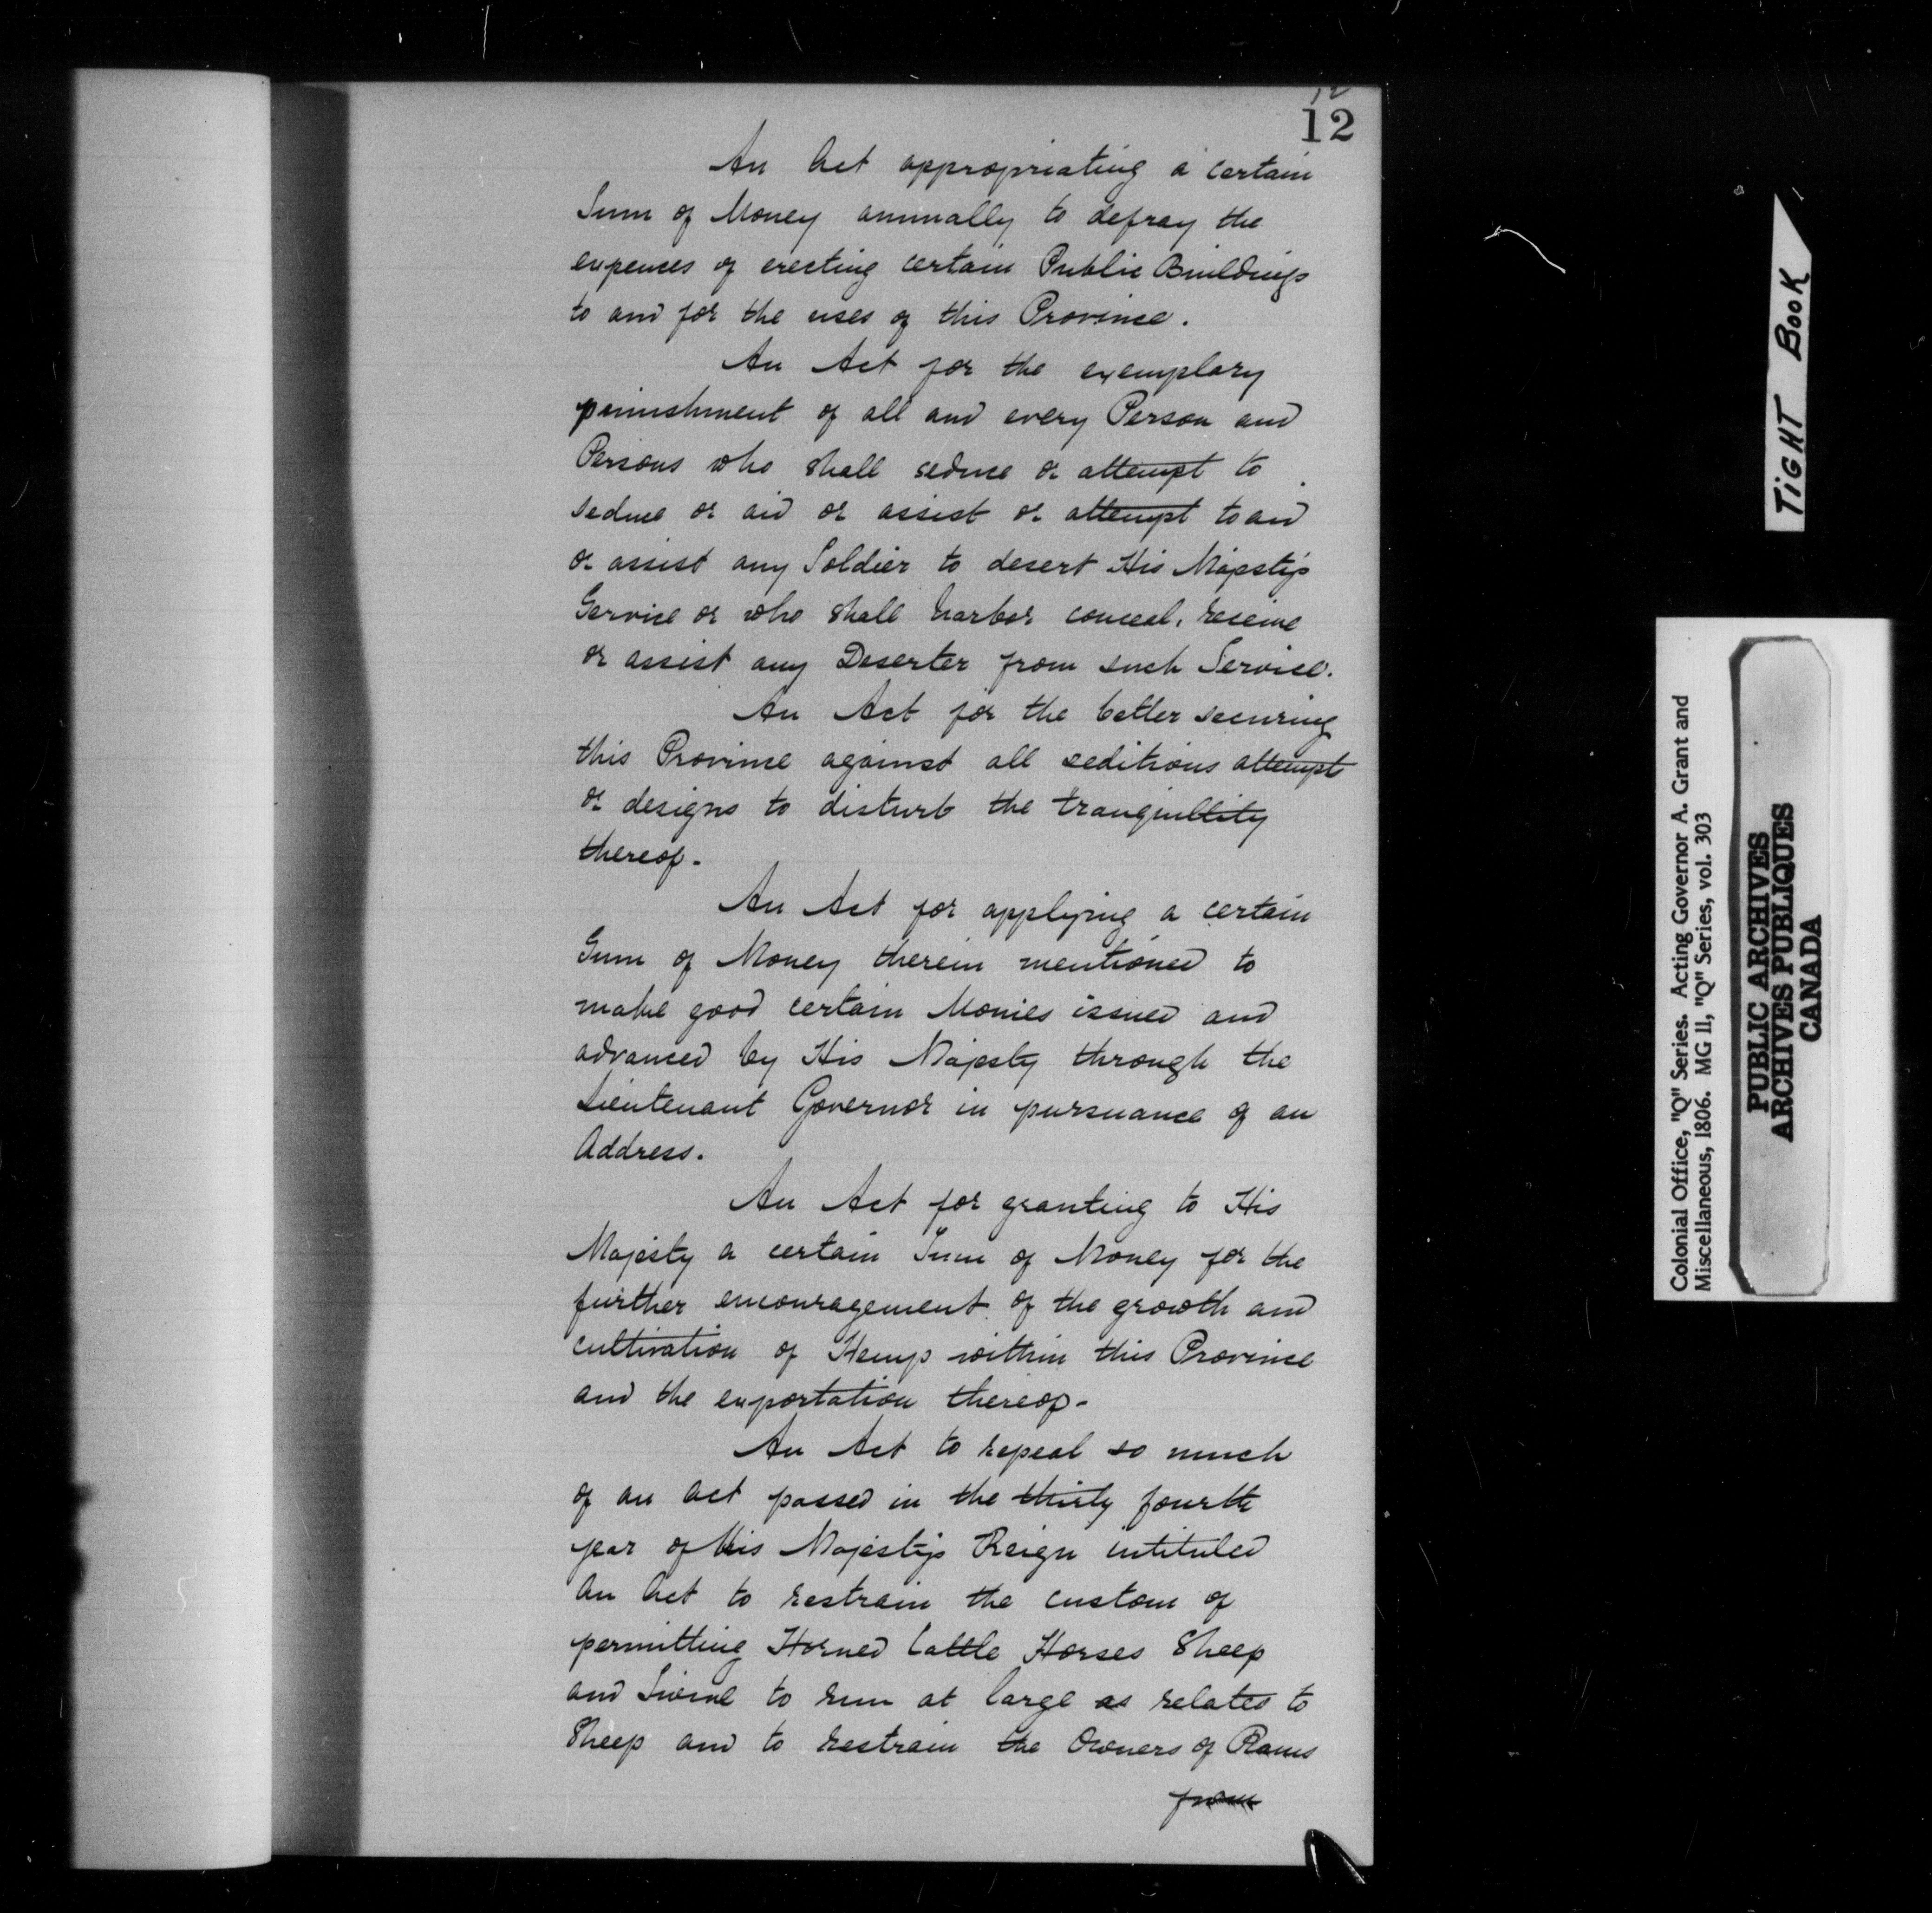 12
12
An Act appropriating a certain
Sum of Money annually to defray the
expences of erecting certain Public Buildings
to and for the uses of this Province.
An Act for the exemplary
punishment of all and every Person and
Persons who shall seduce or attempt to
seduce or aid or assist or attempt to aid
or assist any Soldier to desert His Majesty's
Service or who shall harbor conceal, receive
or assist any Deserter from such Service.
An Act for the better securing
this Province against all seditious attempts
or designs to disturb the tranquillity
thereof.
An Act for applying a certain
Sum of Money therein mentioned to
make good certain Monies issued and
advanced by His Majesty through the
Lieutenant Governor in pursuance of an
Address.
An Act for granting to His
Majesty a certain Sum of Money for the
further encouragement of the growth and
cultivation of Hemp within this Province
and the exportation thereof.
An Act to repeal so much
of an act passed in the thirty fourth
year of His Majesty's Reign intituled
An Act to restrain the custom of
permitting Horned Cattle Horses Sheep
and Swine to run at large as relates to
Sheep and to restrain the Owners of Rams
from
TIGHT BOOK
Colonial Office, "Q" Series. Acting Governor A. Grant and
Miscellaneous, 1806. MG 11, "Q" Series, vol. 303
PUBLIC ARCHIVES
ARCHIVES PUBLIQUES
CANADA